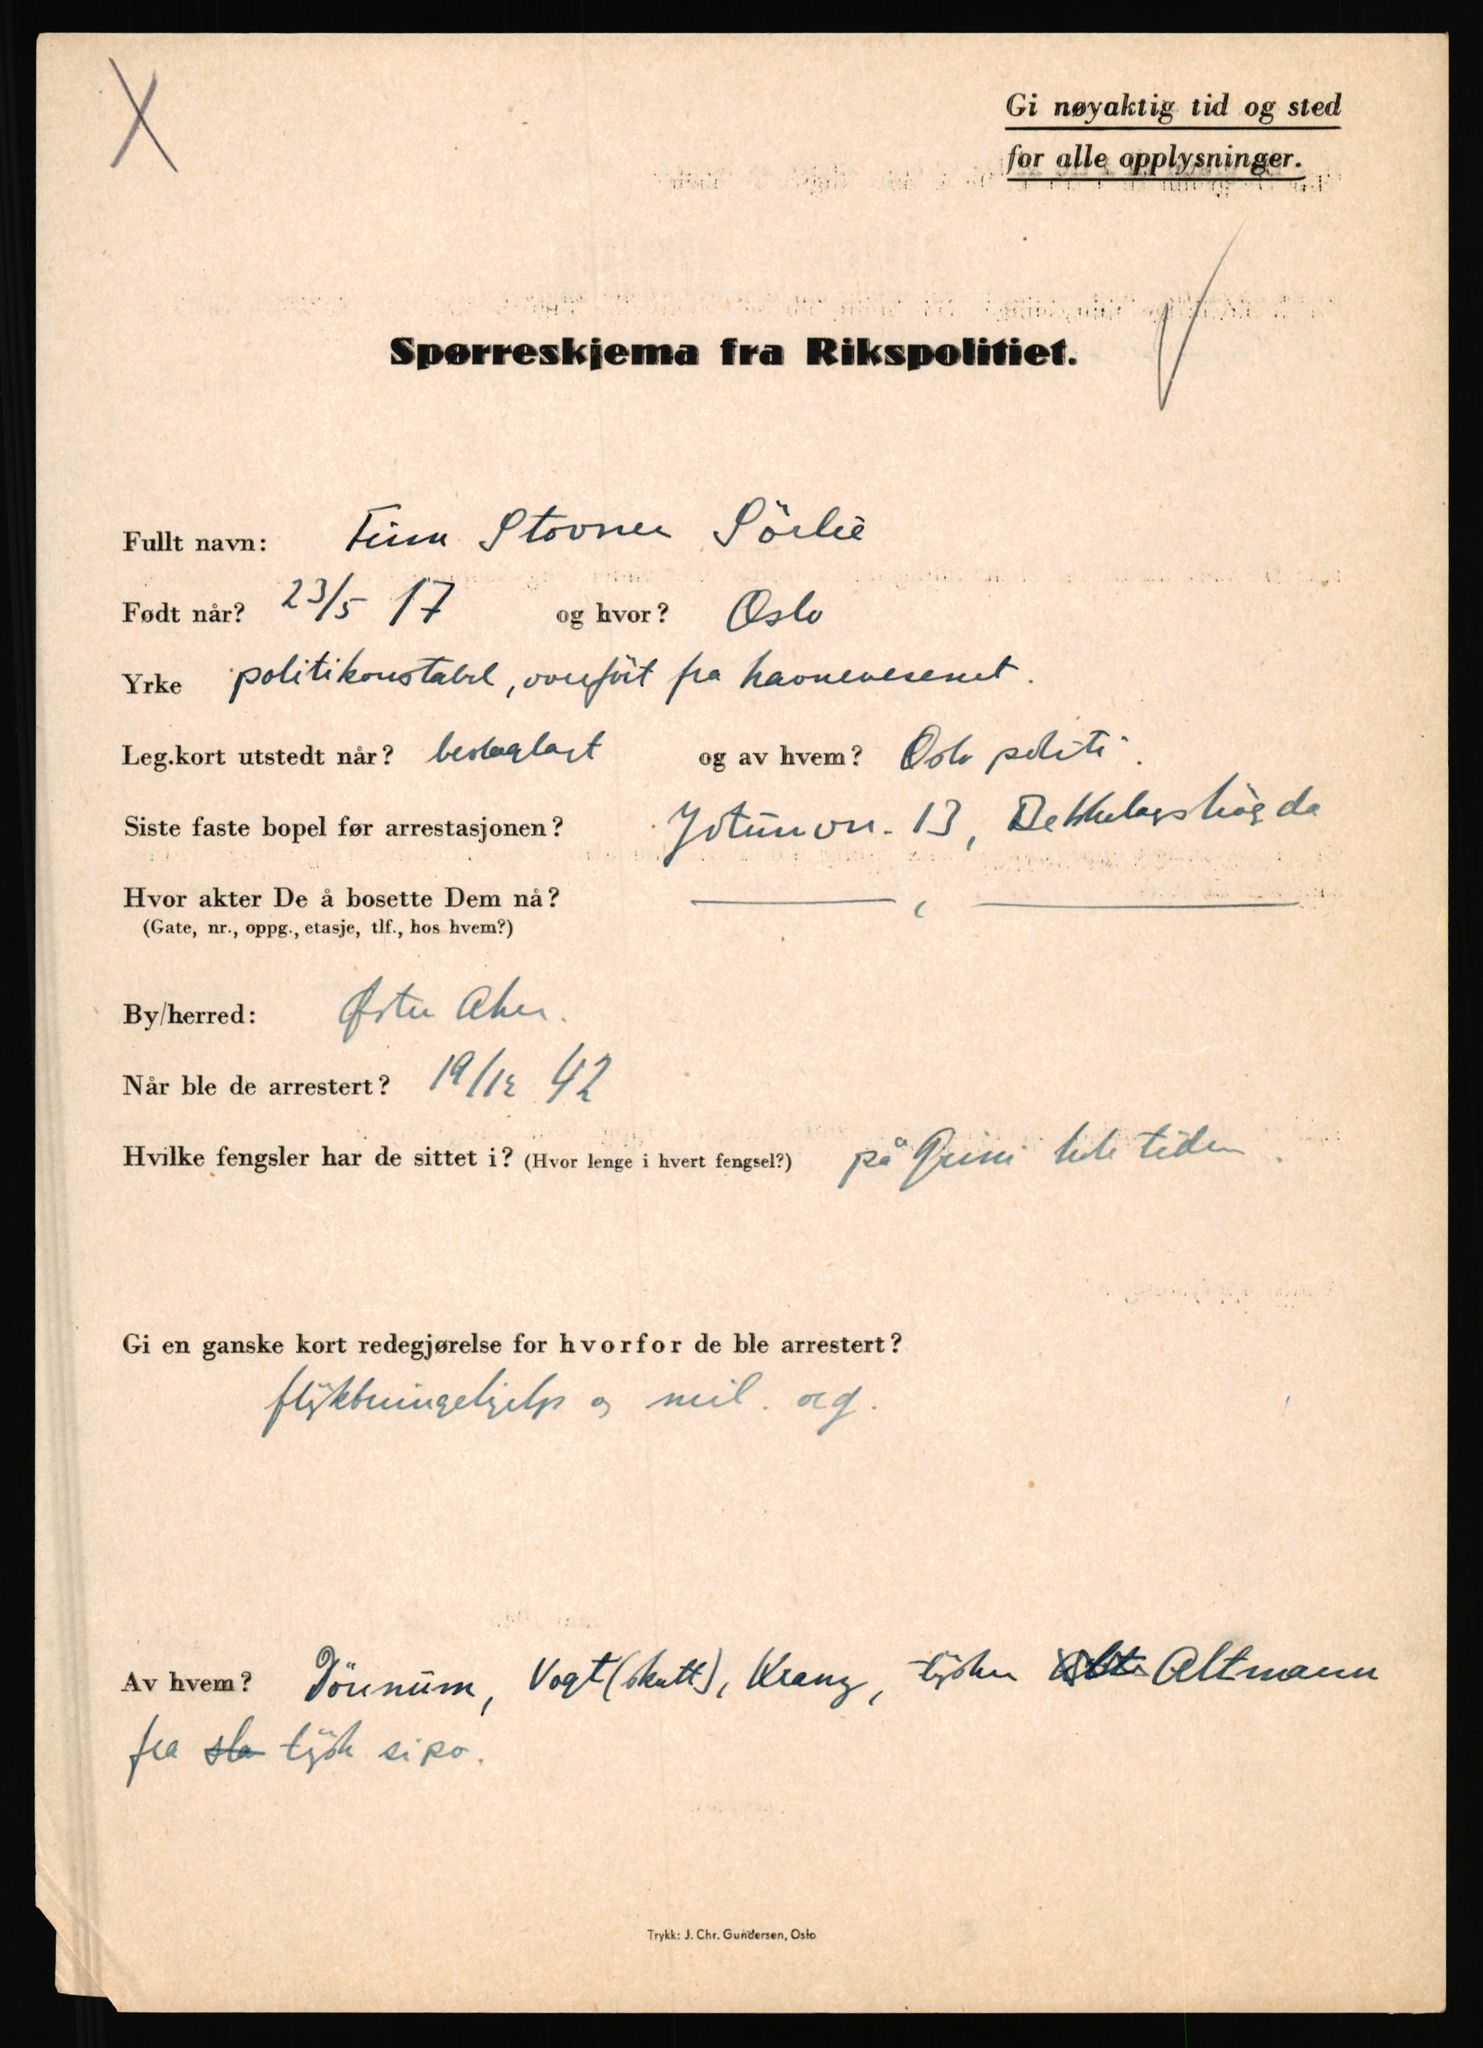 Gi nøyaktig tid og sted
for alle opplysninger.
Spørreskjema fra Rikspolitiet.
Fullt navn: Finn Stovner Sörlie
Født når? 23/5 17 og hvor? Oslo
Yrke politikonstabel, overfört fra havnevesenet.
Leg.kort utstedt når? beslaglagt og av hvem? Oslo politi.
Siste faste bopel før arrestasjonen? Jotunvn. 13, Bekkelagshögda
Hvor akter De å bosette Dem nå? ———— , ————
(Gate, nr., oppg., etasje, tlf., hos hvem?)
By/herred: Øster Aker.
Når ble de arrestert? 19/12 42
Hvilke fengsler har de sittet i? (Hvor lenge i hvert fengsel?) på Grini hele tiden.
Gi en ganske kort redegjørelse for hvorfor de ble arrestert?
flyktningehjelp og mil. org.
Av hvem? Dönnum, Vogt (skutt), Kranz, tysker Altmann
fra tysk sipo.
Trykk: J. Chr. Gundersen, Oslo